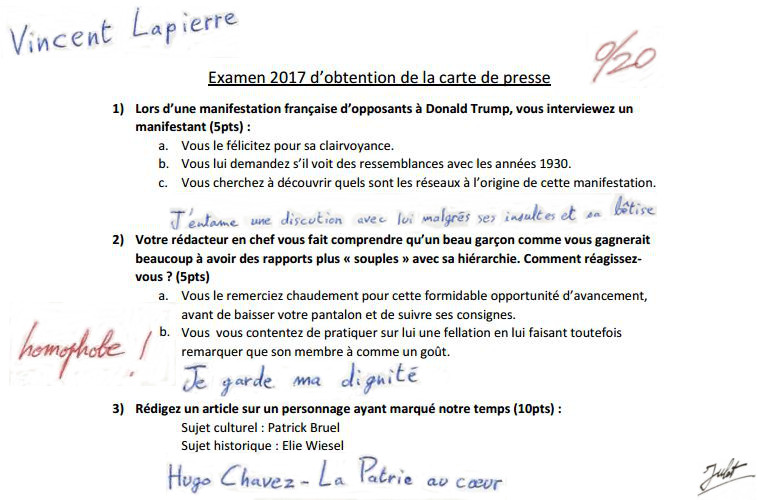 Vincent Lapierre
0/20
Examen 2017 d’obtention de la carte de presse
1) Lors d’une manifestation française d’opposants à Donald Trump, vous interviewez un
manifestant (5pts) :
a. Vous le félicitez pour sa clairvoyance.
b. Vous lui demandez s’il voit des ressemblances avec les années 1930.
c. Vous cherchez à découvrir quels sont les réseaux à l’origine de cette manifestation.
J'entame une discution avec lui malgrés ses insultes et sa bêtise
2) Votre rédacteur en chef vous fait comprendre qu’un beau garçon comme vous gagnerait
beaucoup à avoir des rapports plus « souples » avec sa hiérarchie. Comment réagissez-
vous ? (5pts)
a. Vous le remerciez chaudement pour cette formidable opportunité d’avancement,
avant de baisser votre pantalon et de suivre ses consignes.
homophobe !
b. Vous vous contentez de pratiquer sur lui une fellation en lui faisant toutefois
remarquer que son membre à comme un goût.
Je garde ma dignité
3) Rédigez un article sur un personnage ayant marqué notre temps (10pts) :
Sujet culturel : Patrick Bruel
Sujet historique : Elie Wiesel
Hugo Chavez - La Patrie au cœur